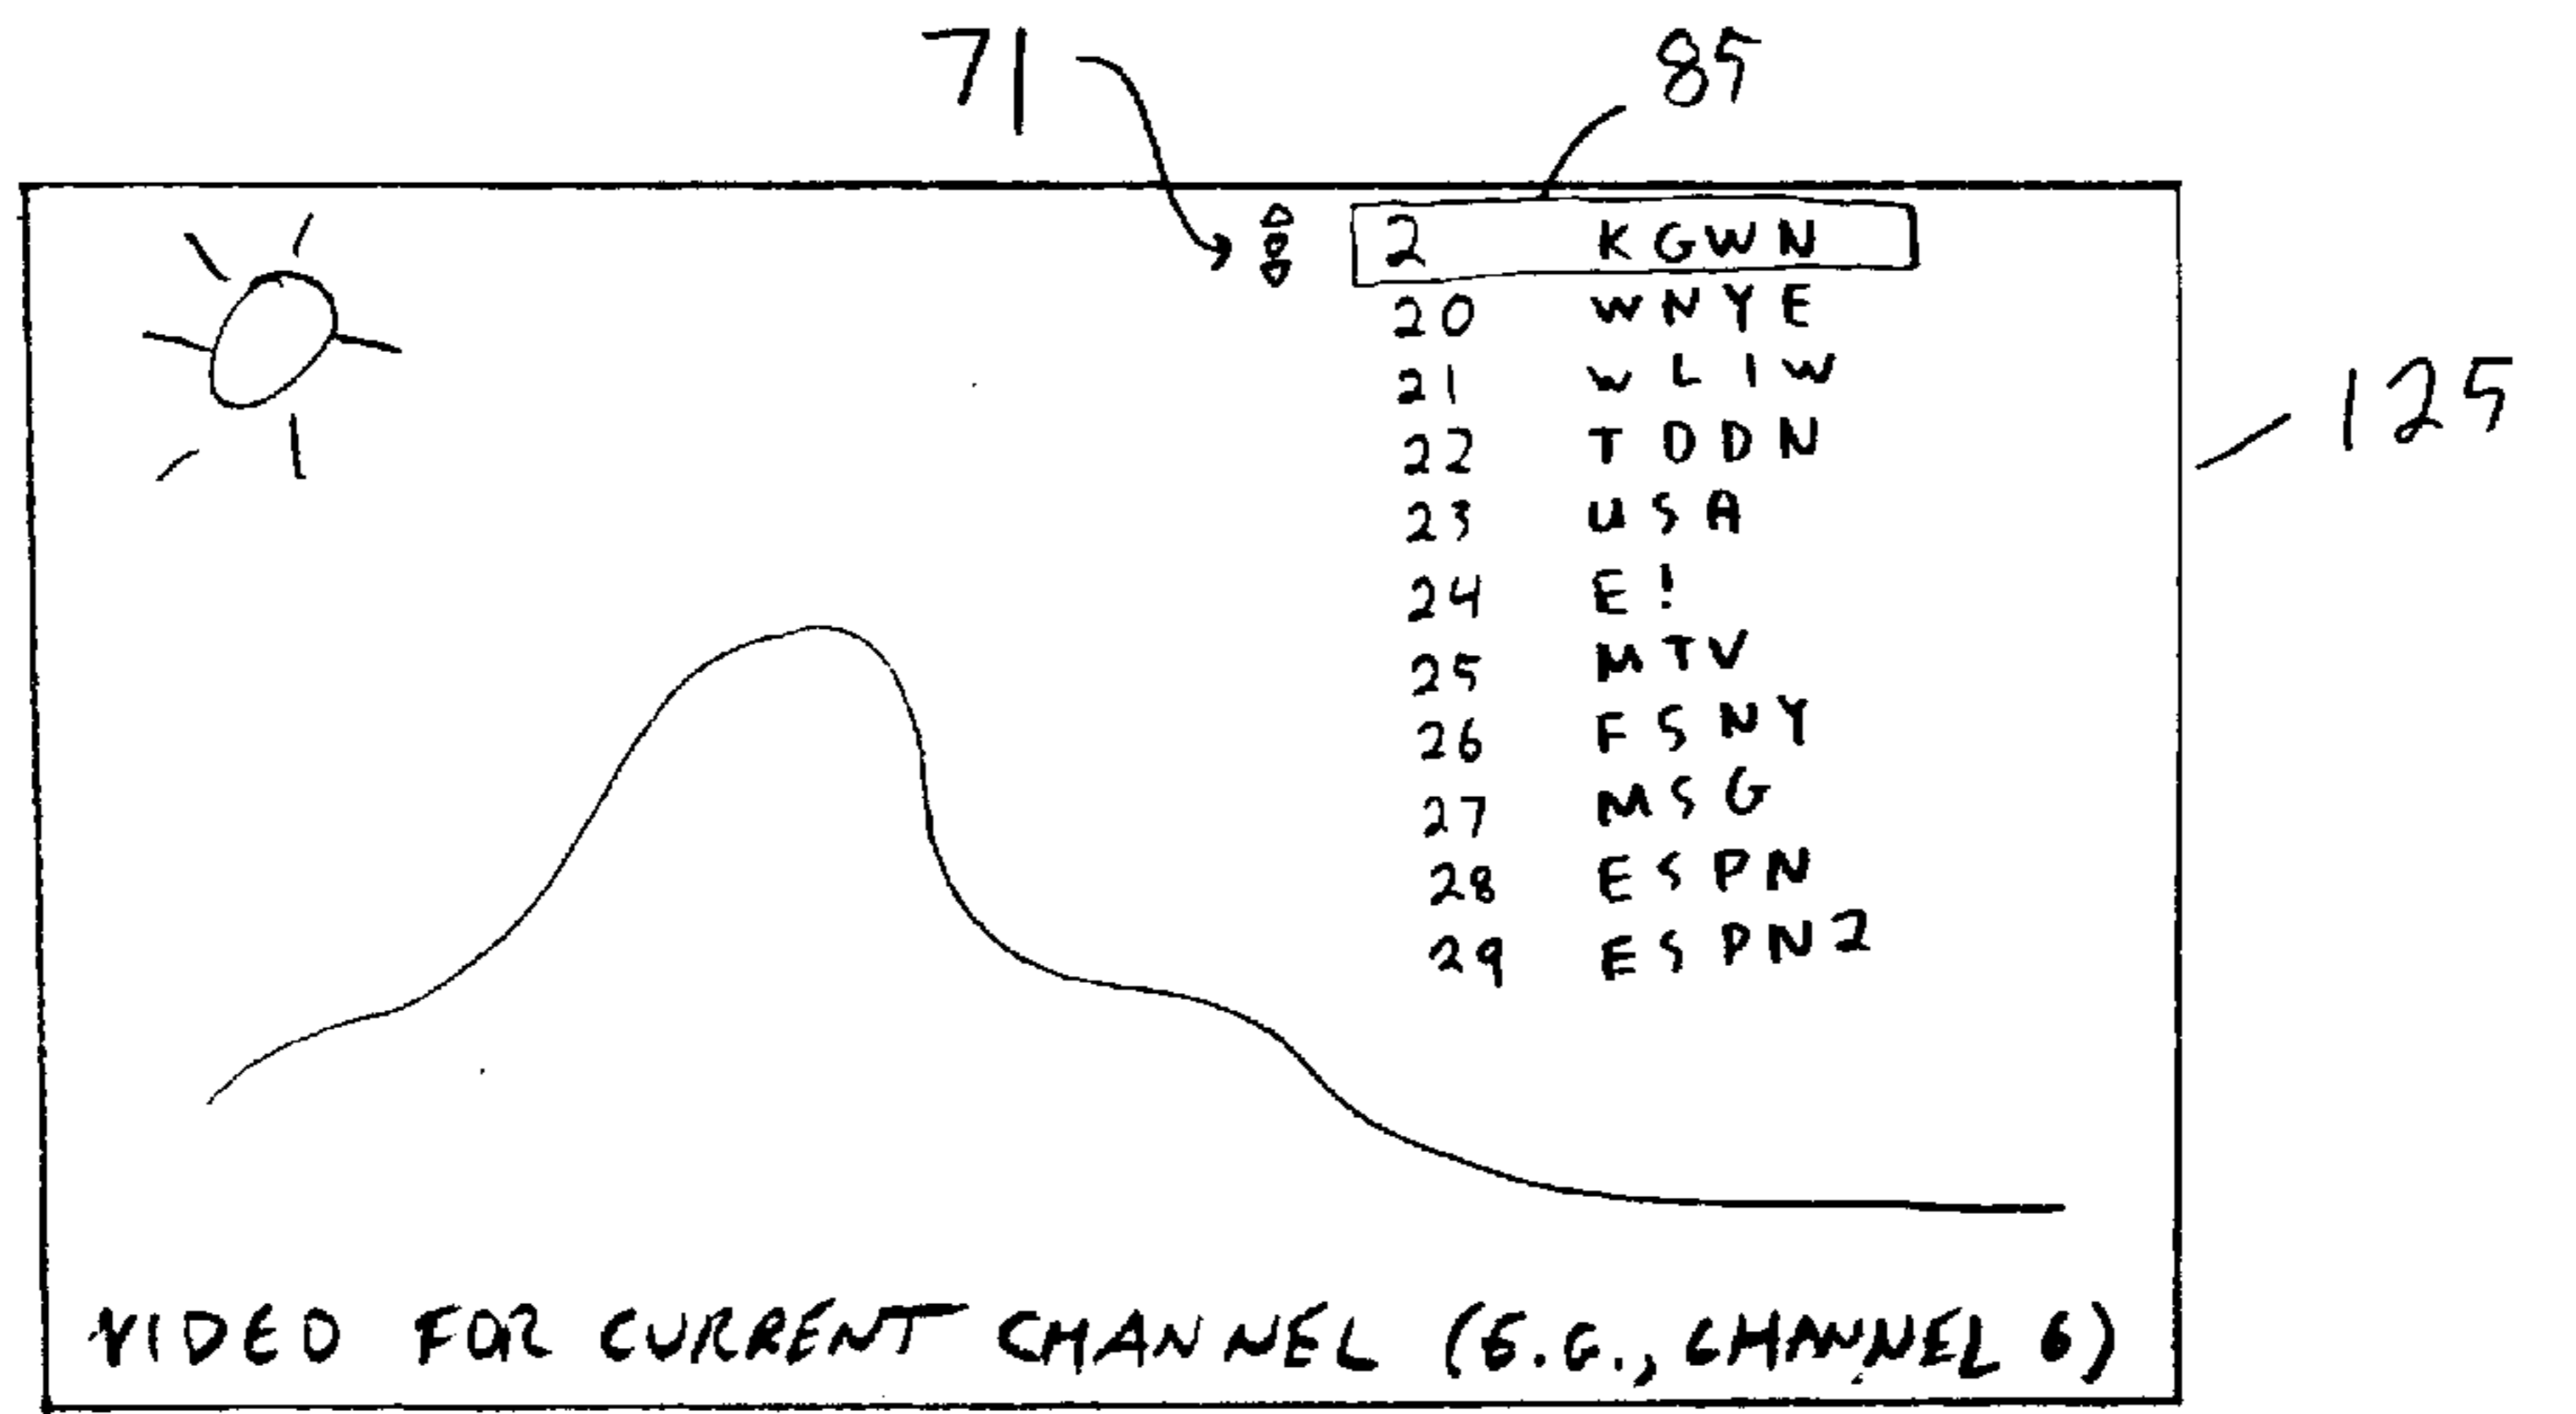 71
85
2 KGWN
20 WNYE
21 WLIW
22 TODN
23 USA
24 E!
25 MTV
26 FSNY
27 MSG
28 ESPN
29 ESPN2
125
VIDEO FOR CURRENT CHANNEL (E.G., CHANNEL 6)